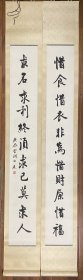 惜食惜衣非為惜財原惜福
求名求利終須求己莫求人